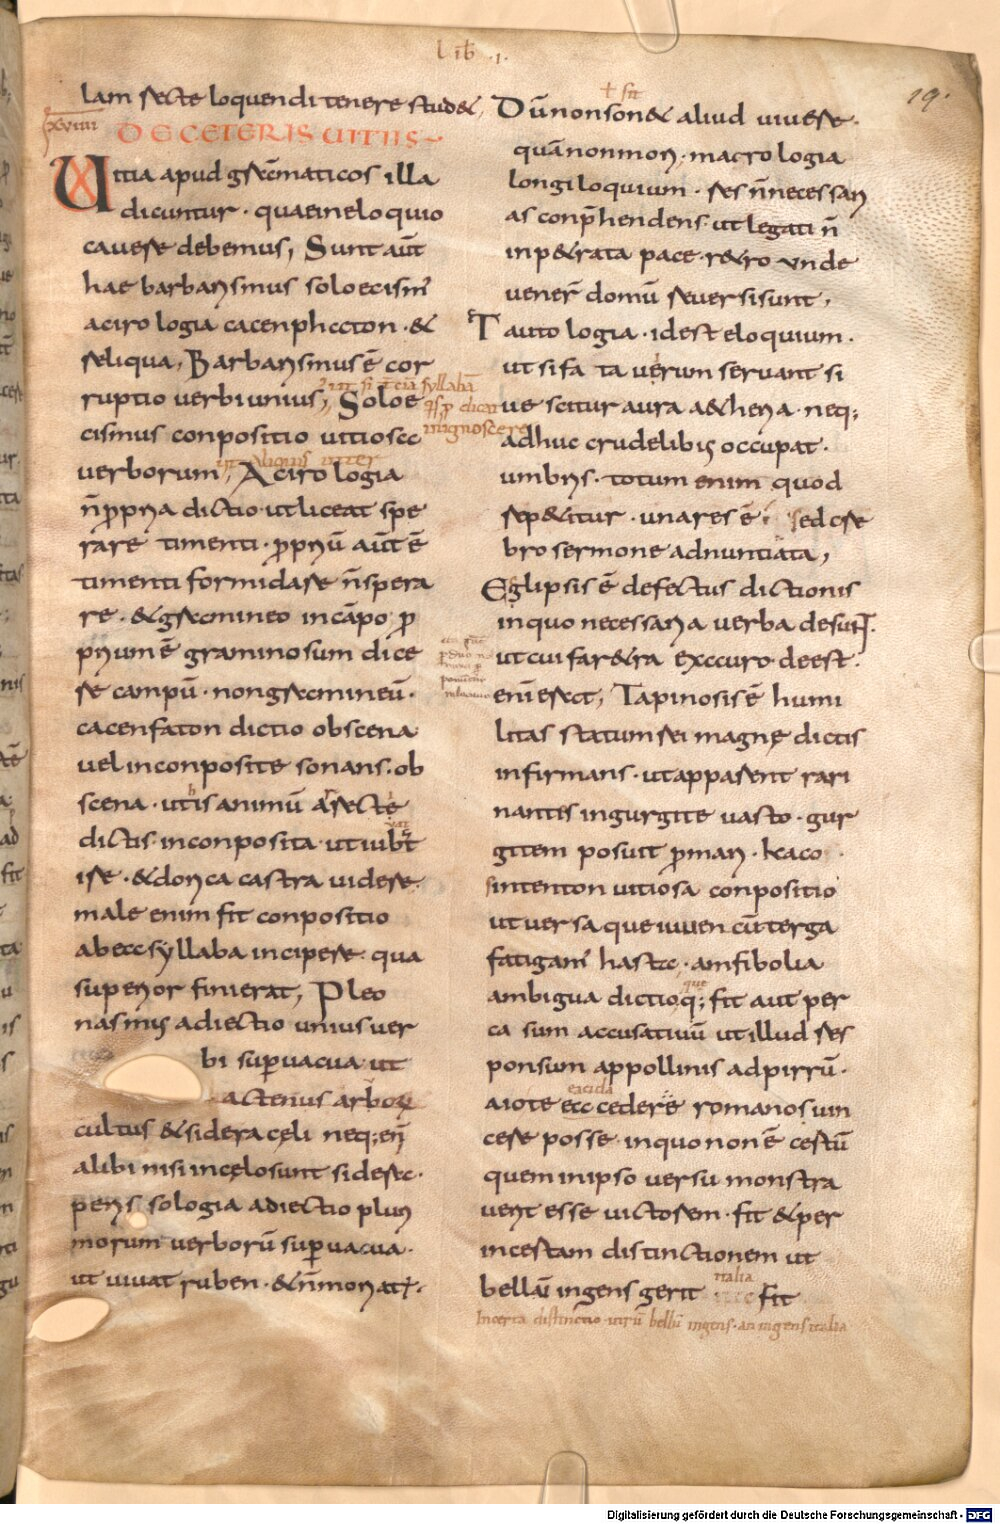 Lib · i ·
19 ·
lam recte loquendi tenere stud&,
xviiii
DE CETERIS UITIIS
Uitia apud gramaticos illa
dicuntur · quae in eloquio
cauere debemus, Sunt aūt
hae barbarismus soloecism̄
acirologia cacenphaton · &
reliqua, Barbarismus ē cor
ruptio uerbi unius, Soloe
cismus conpositio uitiosa
ut aliquis inter
uerborum, Acirologia
n̄ ꝓpria dictio · ut liceat spe
rare timenti · ꝓpriū aūt ē
timenti formidare n̄ spera
re · & gramineo in cāpo ꝓ
prium ē graminosum dice
re campū · non gramineū ·
cacenfaton dictio obscena
uel inconposite sonans · ob
scena · ut is animū arrecte
dictis · inconposita · ut iubūt
ire · & dorica castra uidere ·
male enim fit conpositio
ab ea syllaba incipere · qua
superior finierat, Pleo
nasmus adiectio unius uer
bi suꝑuacua ut
actenus arborū
cultus & sidera cęli neq; eni
alibi nisi in cęlo sunt sidera ·
perissologia adiectio pluri
morum uerborū suꝑuacua ·
ut uiuat ruben · & n̄ moriat ·
sit
Dū non son& aliud uiuere ·
quā non mori · macrologia
longiloquium · res n̄ necessari
as conp̄hendens · ut legati n̄
inp&rata pace · r&ro unde
venerˉ domū reuersi sunt,
Tautologia · idest eloquium ·
ut si fata uerum seruant si
ue scitur aura a&heria · neq;
adhuc crudelibus occupat ·
umbris · totum enim quod
rep&itur · una res ē · sed cre
bro sermone adnuntiata,
Eglipsis ē defectus dictionis
in quo necessaria uerba desuni ·
ut cui far&ra ex auro deest ·
eni erat, Tapinosis ē humi
litas statum rei magnę dictis
infirmans · ut apparent rari
nantes in gurgite uasto · gur
gitem posuit ꝓ mari · kaco
sintenton uitiosa conpositio
ut uersa que iuuencū terga
fatigam̄ hasta · amfibolia
que
ambigua dictio q; fit aut per
casum accusatiuū ut illud res
ponsum appollinis ad pirrū ·
eacida
aio te eccedere romanos uin
cere posse · in quo non ē certū
quem in ipso uersu monstra
uerit esse uictorem · fit & per
incertam distinctionem ut
italia
bellū ingens gerit fit
Incerta distinctio utrū bellū ingens · an ingens italia
Digitalisierung gefördert durch die Deutsche Forschungsgemeinschaft · DFG